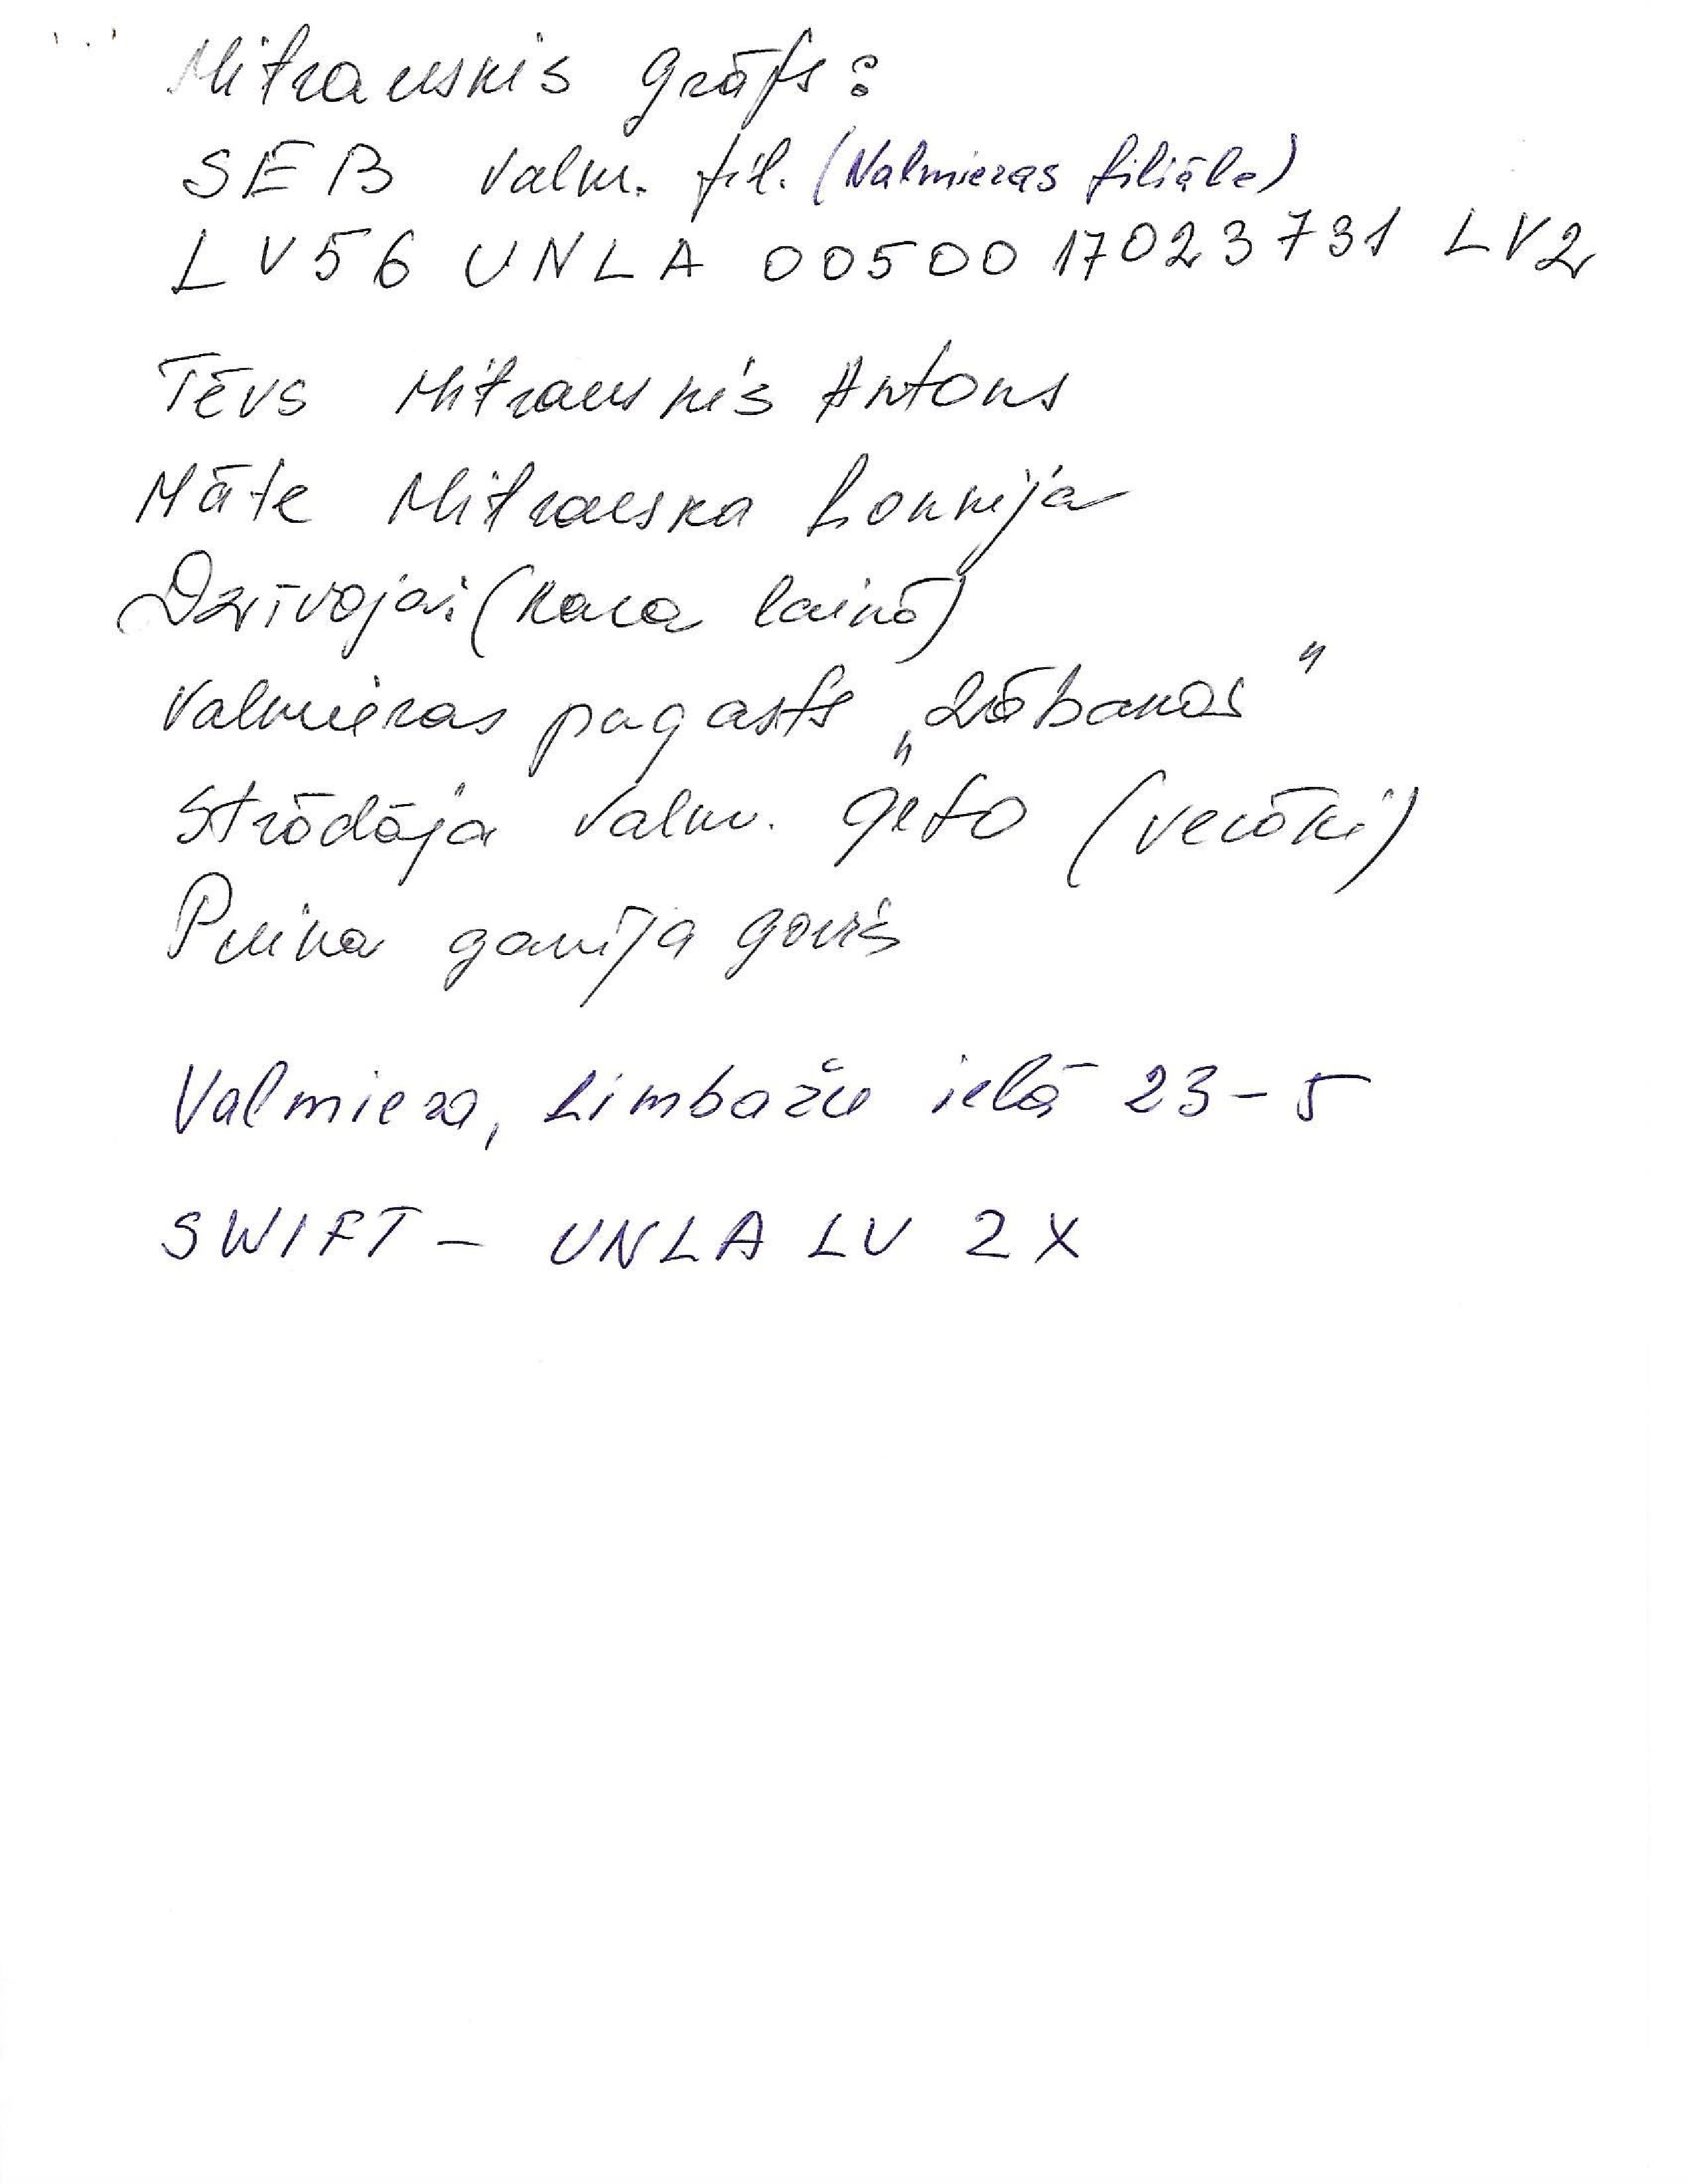 Mitrauskis Grāfs:
SEB Valm. fil. (Valmieras filiāle)
LV56 UNLA 00500 17023731 LV2
Tēvs Mitrauskis Antons
Māte Mitrauska Lonnija
Dzīvojai (kara laikā)
Valmieras pagasts „Zābakas"
Strādāja Valm. geto (vecāki)
Puika ganīja govis
Valmiera, Limbažu ielā 23-5
SWIFT - UNLA LV 2X